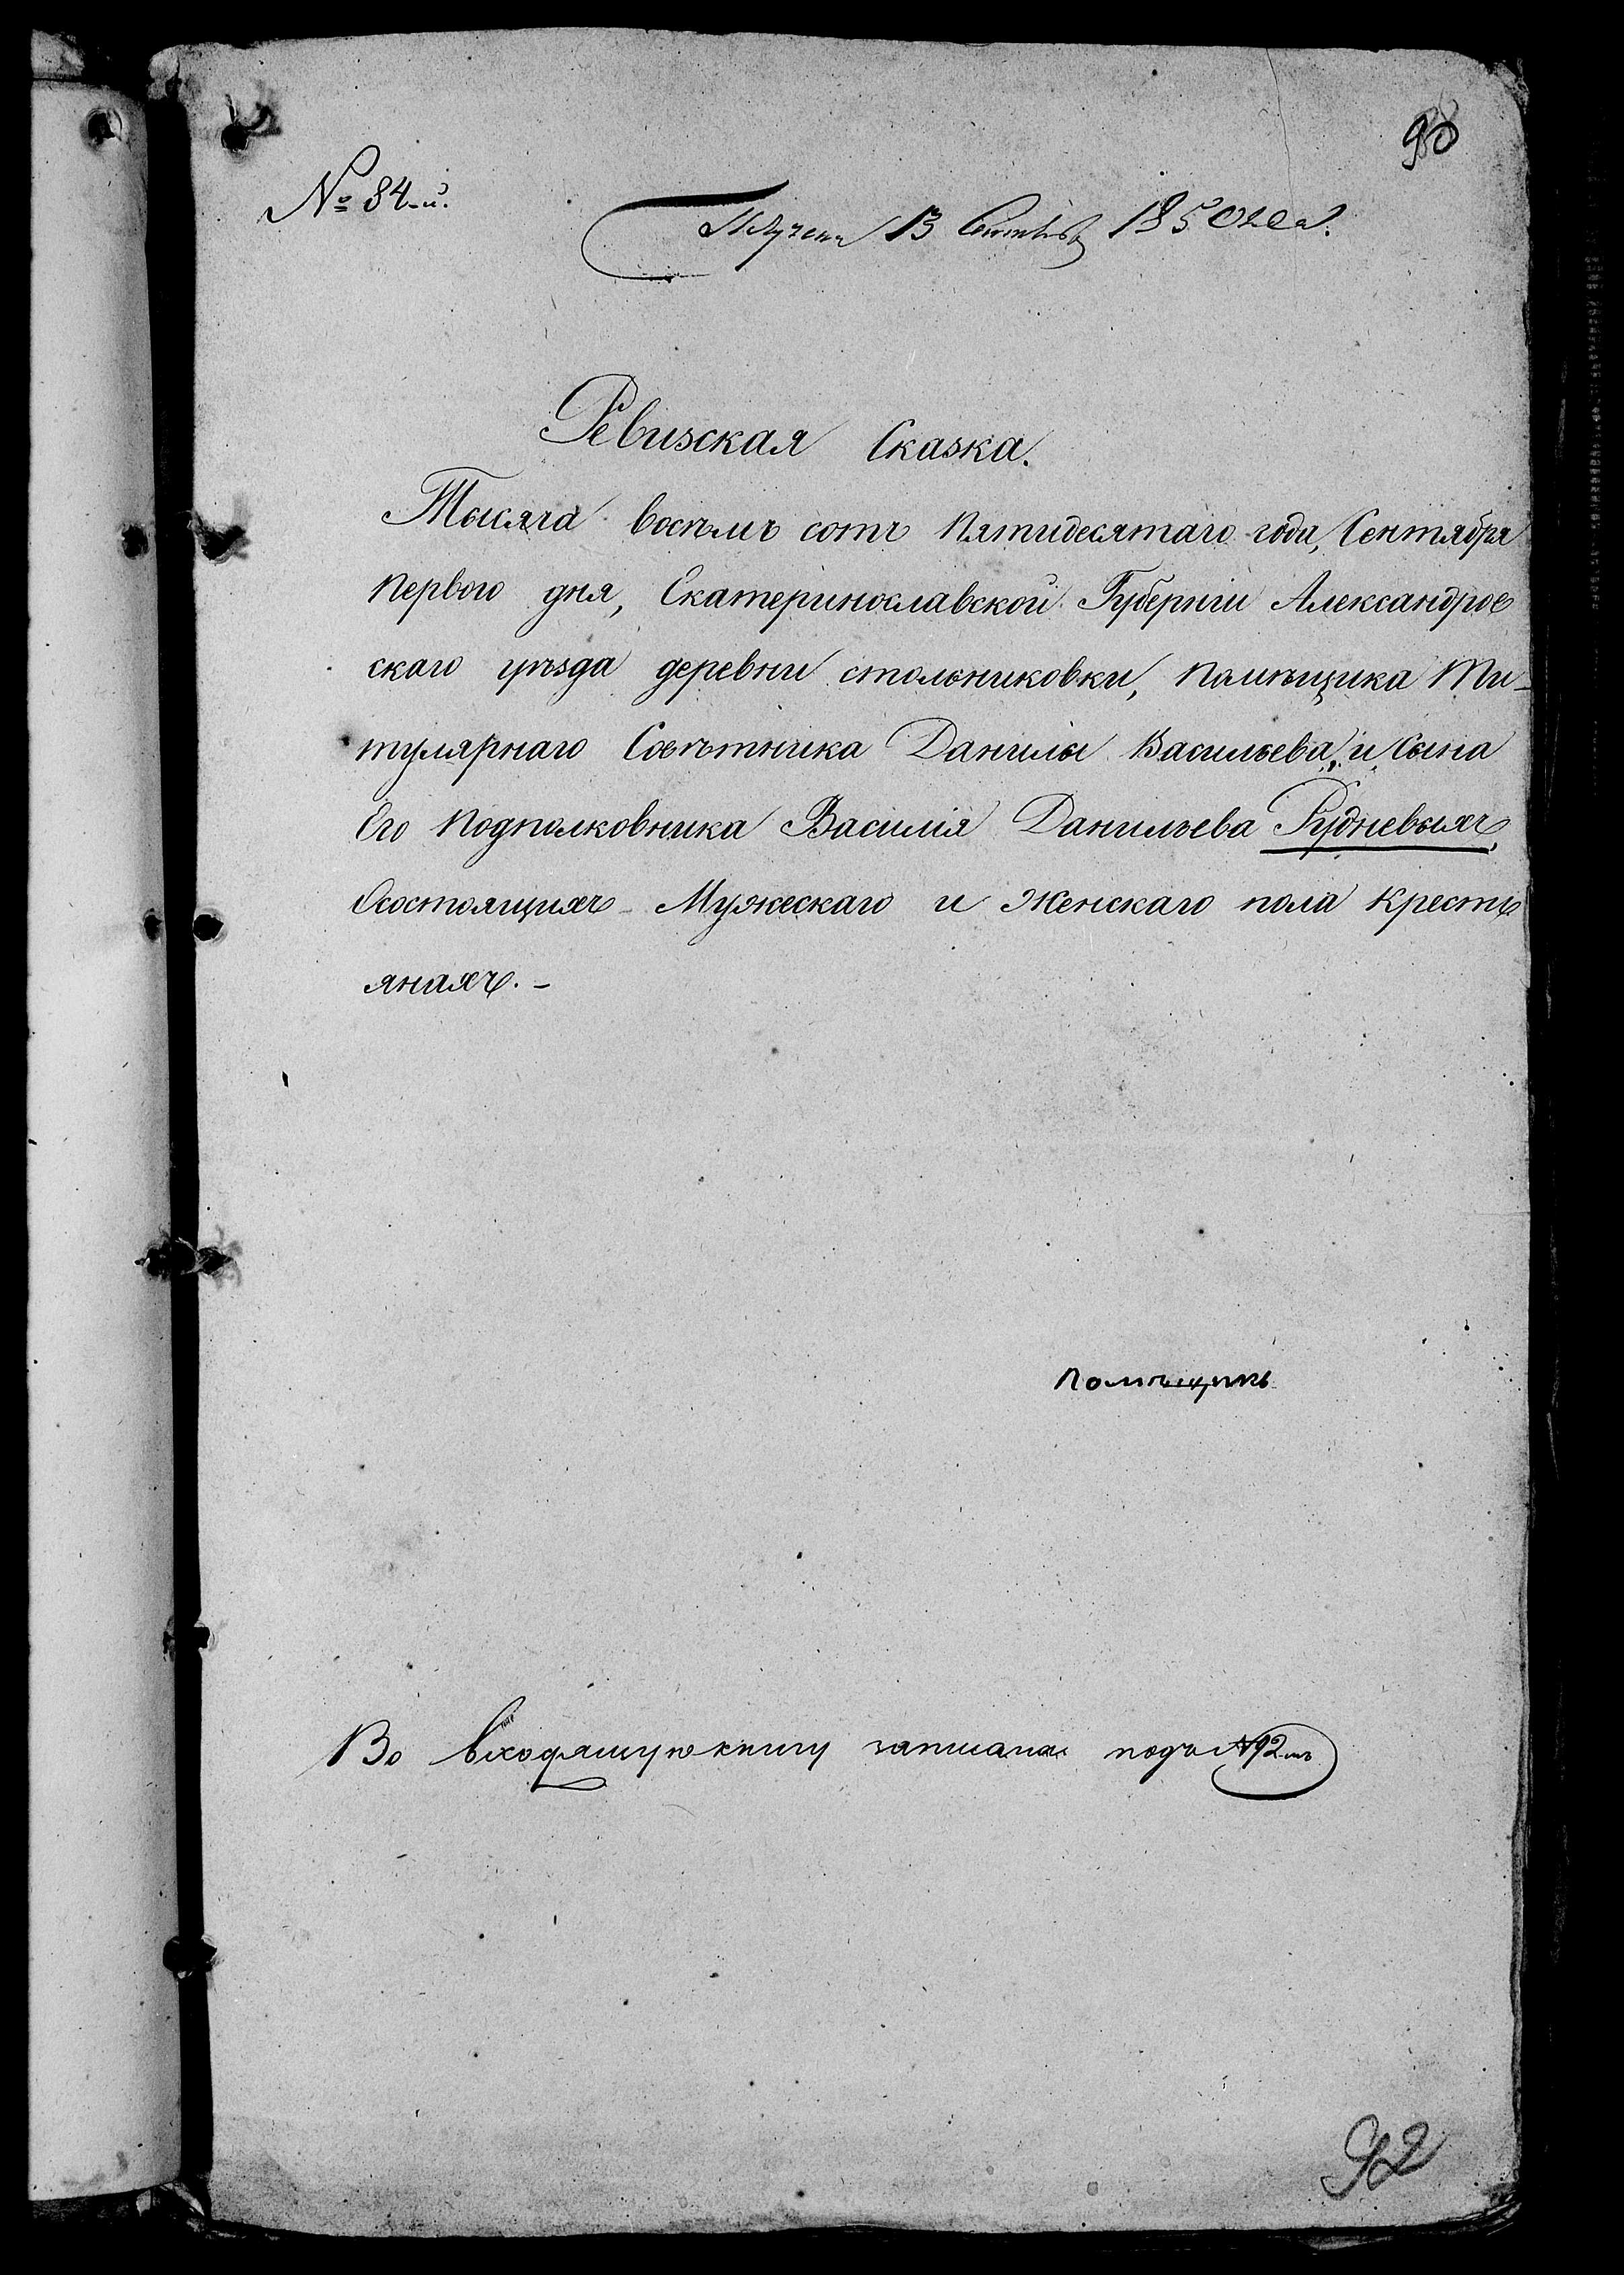 90
№ 84-й.
Получена 13 Сентября 1850 года.
Ревизская Сказка.
Тысяча восемь сотъ пятидесятаго года, Сентября
первого дня, Екатеринославской Губерніи Александров
скаго уѣзда деревни столниковки, помѣщика Ти-
тулярнаго Совѣтника Данилы Васильева, и Сына
Его Подполковника Василія Данильева Рудневыхъ,
Осостоящихъ Мужескаго и Женскаго пола Кресть
янахъ. -
помѣщикъ
Во входящую книгу записана подъ №92мъ
92